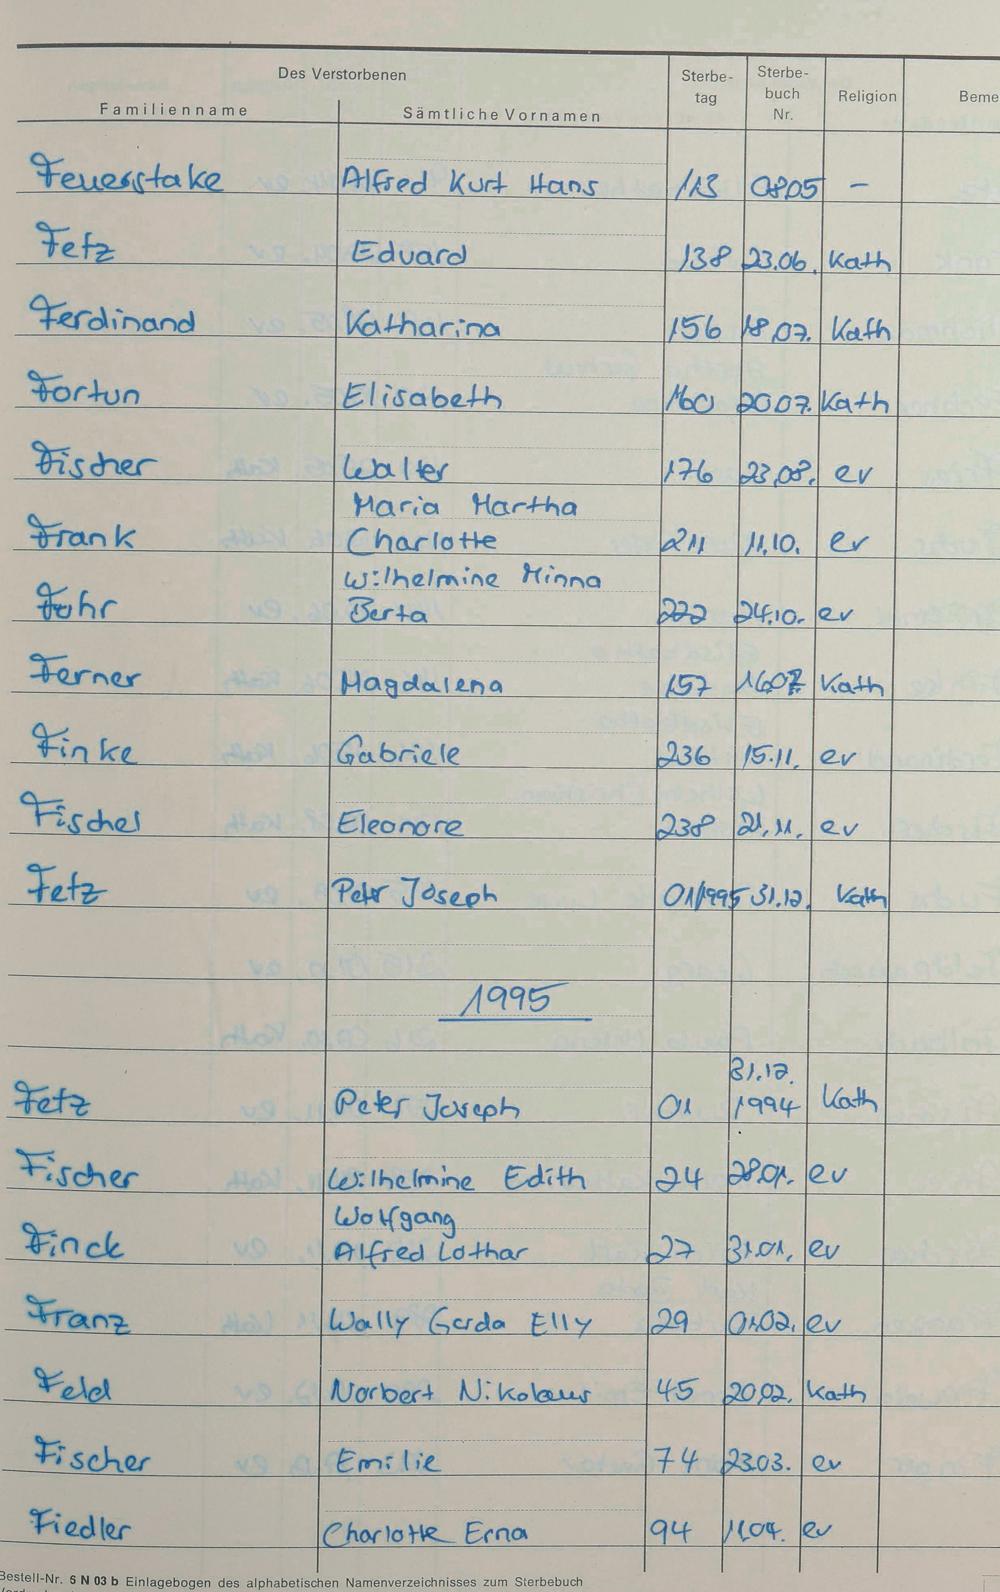 Des Verstorbenen
Familienname Sämtliche Vornamen Sterbe-tag Sterbe-buch Nr. Religion Beme
Feuerstake Alfred Kurt Hans 113 08.05 –
Fetz Eduard 138 23.06. Kath
Ferdinand Katharina 156 18.07. Kath
Fortun Elisabeth 160 20.07. Kath
Fischer Walter 176 23.08. ev
Maria Martha
Frank Charlotte 211 11.10. ev
Wilhelmine Minna
Fuhr Berta 222 24.10. ev
Ferner Magdalena 157 16.07 Kath
Finke Gabriele 236 15.11. ev
Fischel Eleonore 238 21.11. ev
Fetz Peter Joseph 01/1995 31.12. Kath
1995
31.12.
Fetz Peter Joseph 01 1994 Kath
Fischer Wilhelmine Edith 24 28.01. ev
Wolfgang
Finck Alfred Lothar 27 31.01. ev
Franz Wally Gerda Elly 29 01.02. ev
Feld Norbert Nikolaus 45 20.02. Kath
Fischer Emilie 74 23.03. ev
Fiedler Charlotte Erna 94 11.04. ev
Bestell-Nr. 5 N 03 b Einlagebogen des alphabetischen Namenverzeichnisses zum Sterbebuch